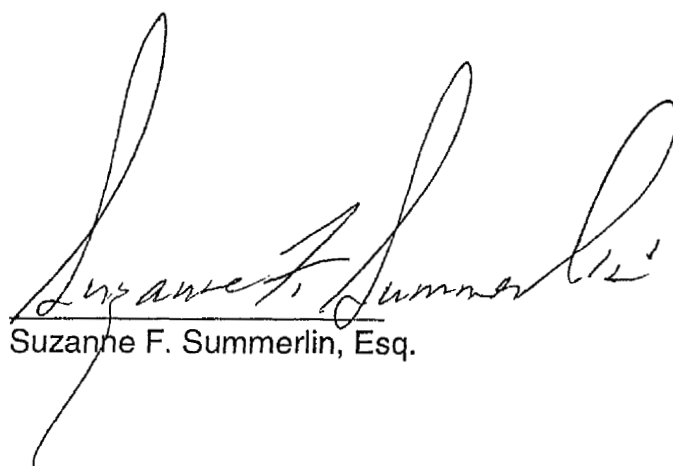 Suzanne F. Summerlin
Suzanne F. Summerlin, Esq.